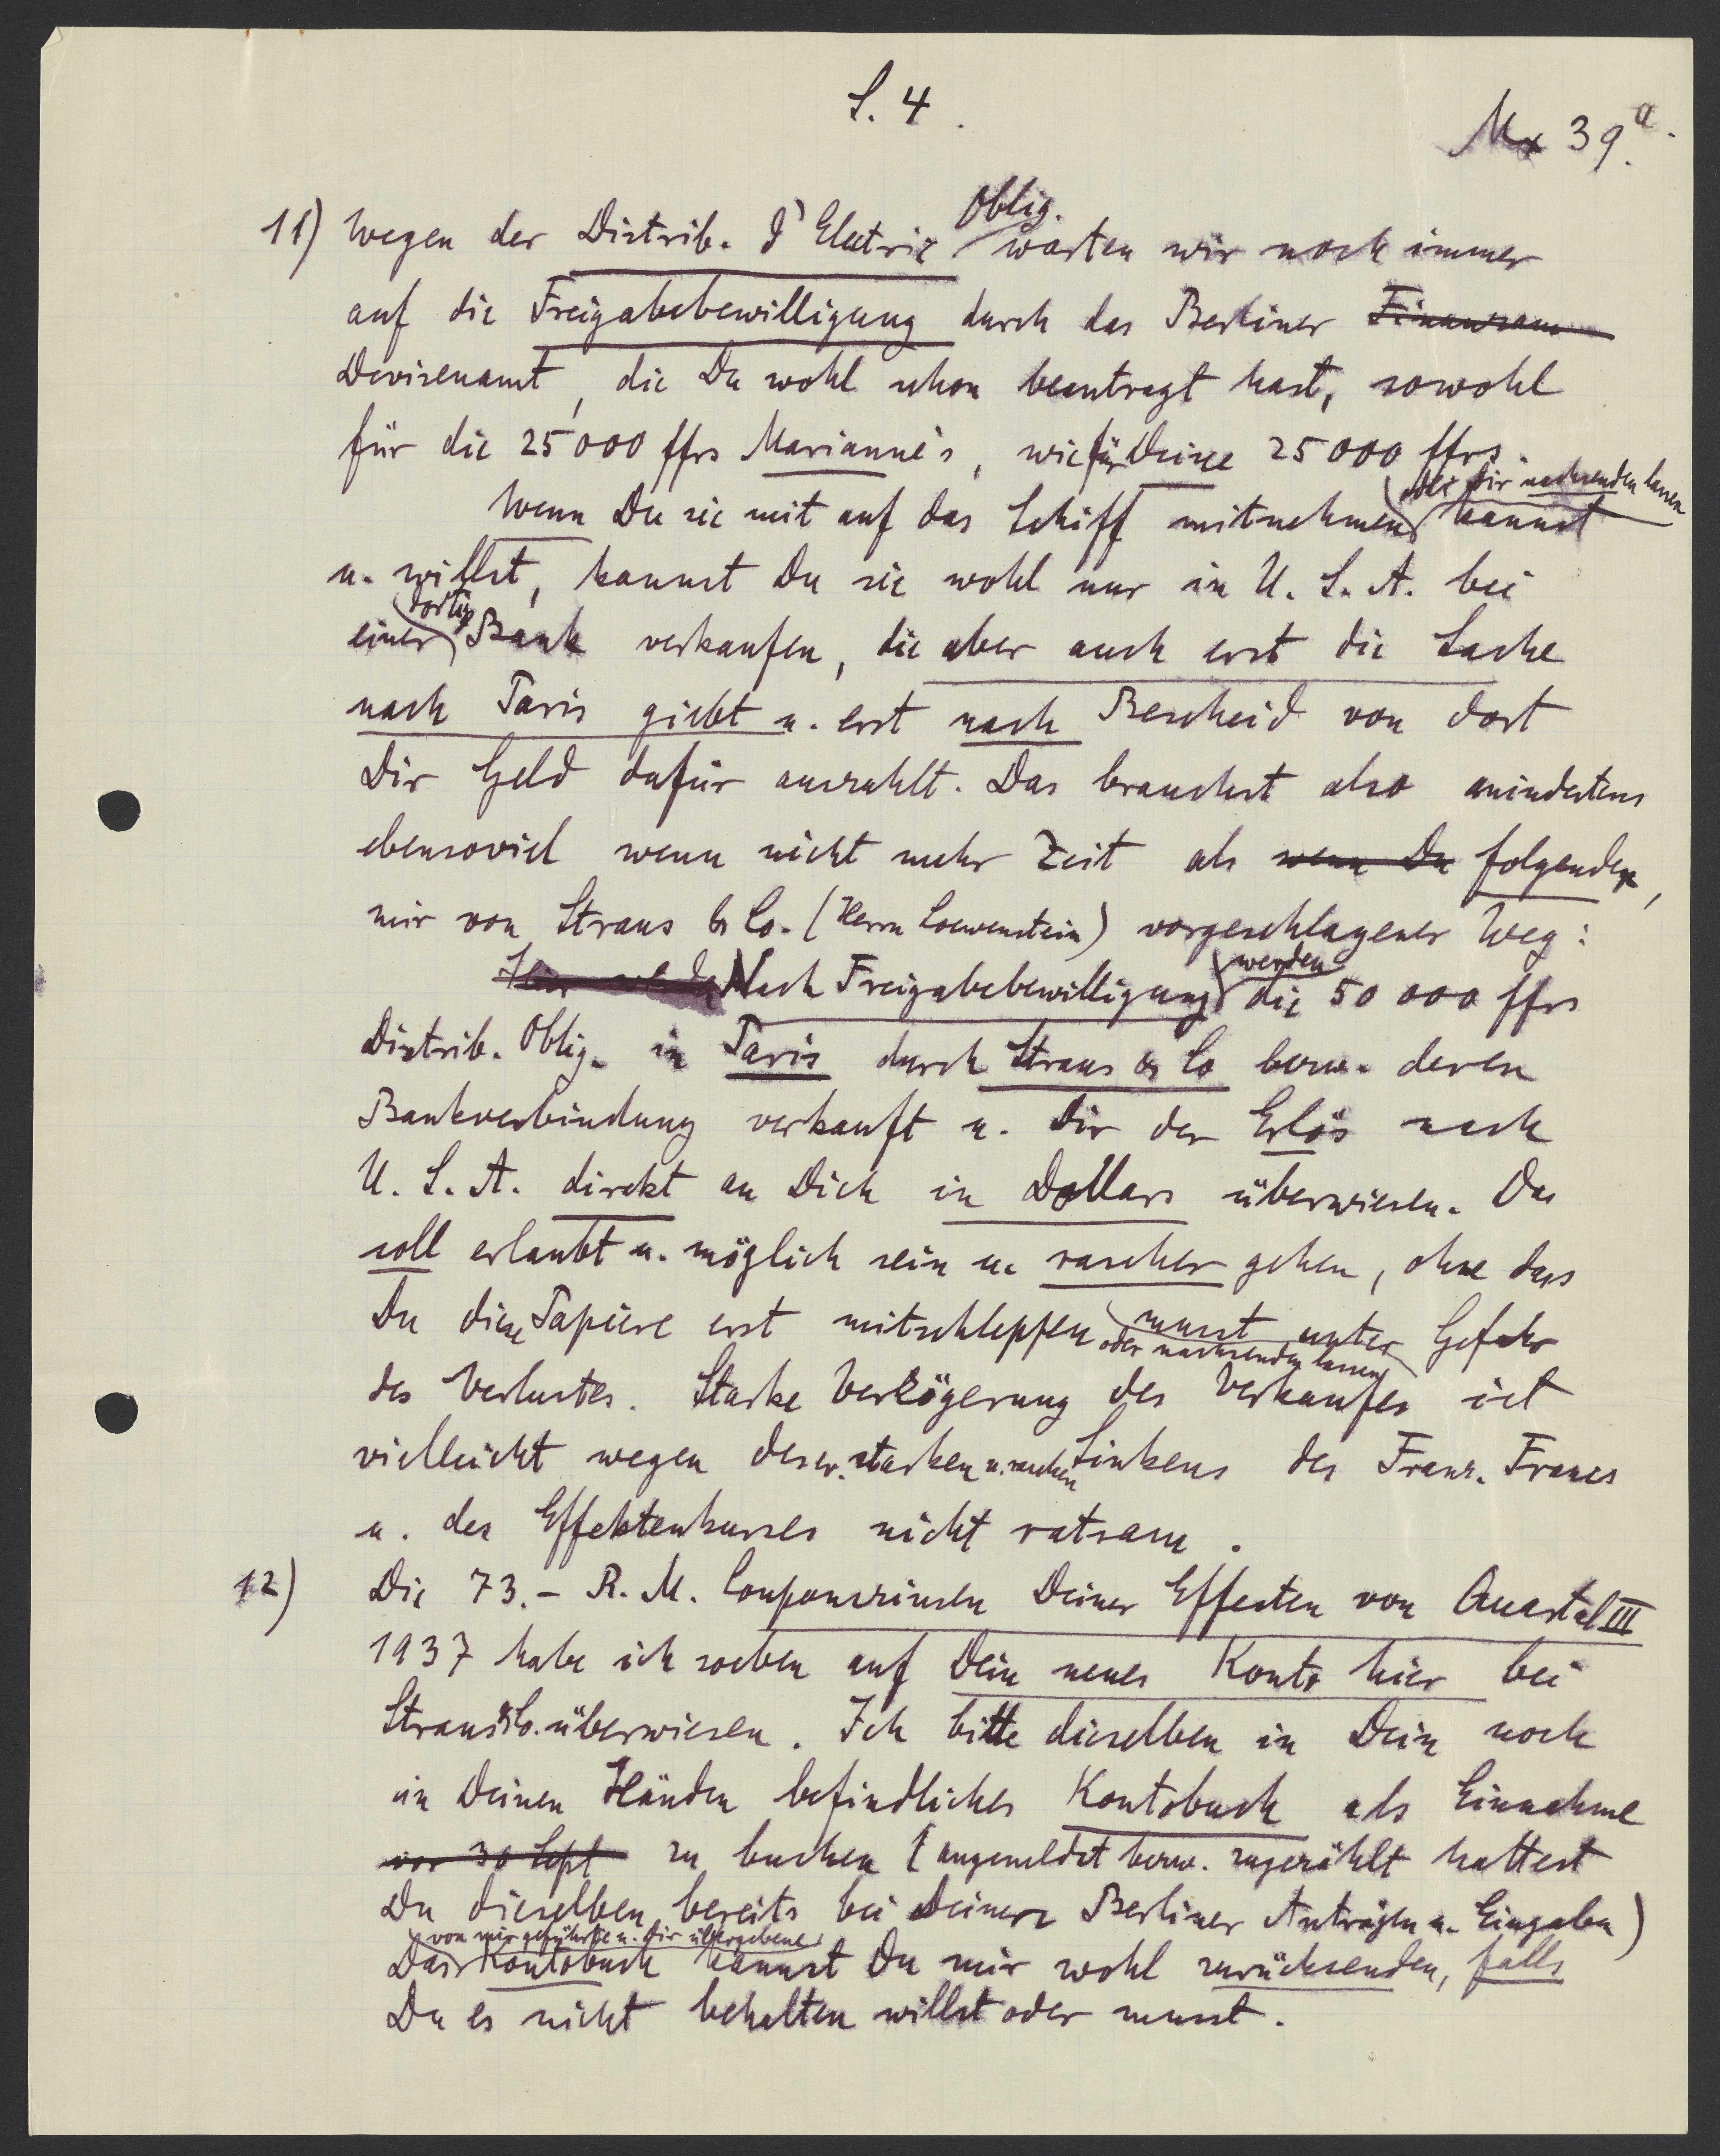 S. 4.
Mx 39.a.
11) Wegen der Distrib. d'Electric Oblig. warten wir noch immer
auf die Freigabebewilligung durch das Berliner Finanzam
Devisenamt, die Du wohl schon beantragt hast, sowohl
für die 25000 ffrs Marianne's, wie für Deine 25000 ffrs.
Wenn Du sie mit auf das Schiff mitnehmen oder Dir nachsenden lassen kannst
u. willst, kannst Du sie wohl nur in U. S. A. bei
einer dortig Bank verkaufen, die aber auch erst die Sache
nach Paris giebt u. erst nach Bescheid von dort
Dir Geld dafür auszahlt. Das brauchst also mindestens
ebensoviel wenn nicht mehr Zeit als wenn Du folgender,
mir von Straus & Co. (Herrn Loewenstein) vorgeschlagener Weg:
Nach Freigabebewilligung werden die 50 000 ffrs
Distrib. Oblig. in Paris durch Straus & Co bezw. deren
Bankverbindung verkauft u. Dir der Erlös nach
U. S. A. direkt an Dich in Dollars überwiesen. Das
soll erlaubt u. möglich sein u. rascher gehen, ohne dass
Du diese Papiere erst mitschleppen oder nachsenden lassen musst unter Gefahr
des Verlustes. Starke Verzögerung des Verkaufes ist
vielleicht wegen des ev. starken u. raschen Sinkens des Franz. Francs
u. des Effektenkurses nicht ratsam.
12) Die 73.- R. M. Couponszinsen Deiner Effecten von Quartal III
1937 habe ich soeben auf Dein neues Konto hier bei
Straus & Co. überwiesen. Ich bitte dieselben in Dein noch
in Deinen Händen befindliches Kontobuch als Einnahme
vor 30 Sept zu buchen (angemeldet bezw. zugezählt hattest
Du dieselben bereits bei Deinen Berliner Anträgen u. Eingaben)
Das von mir geführte u. Dir übergebene Kontobuch kannst Du mir wohl zurücksenden, falls
Du es nicht behalten willst oder musst.